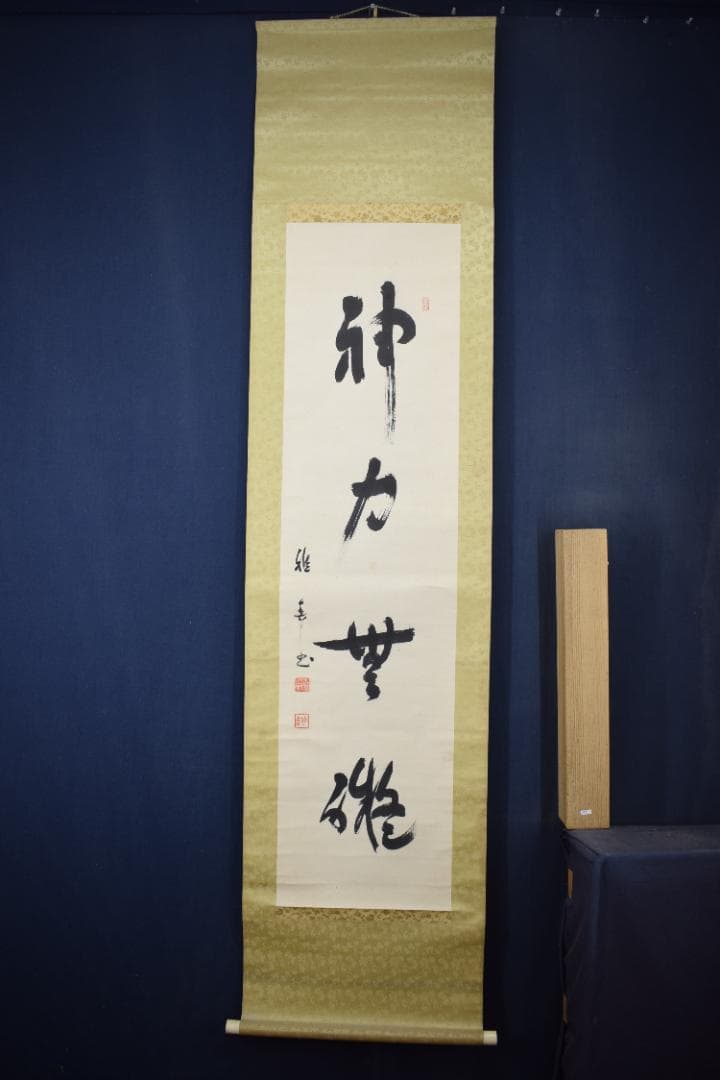 神力無礙
雅春書